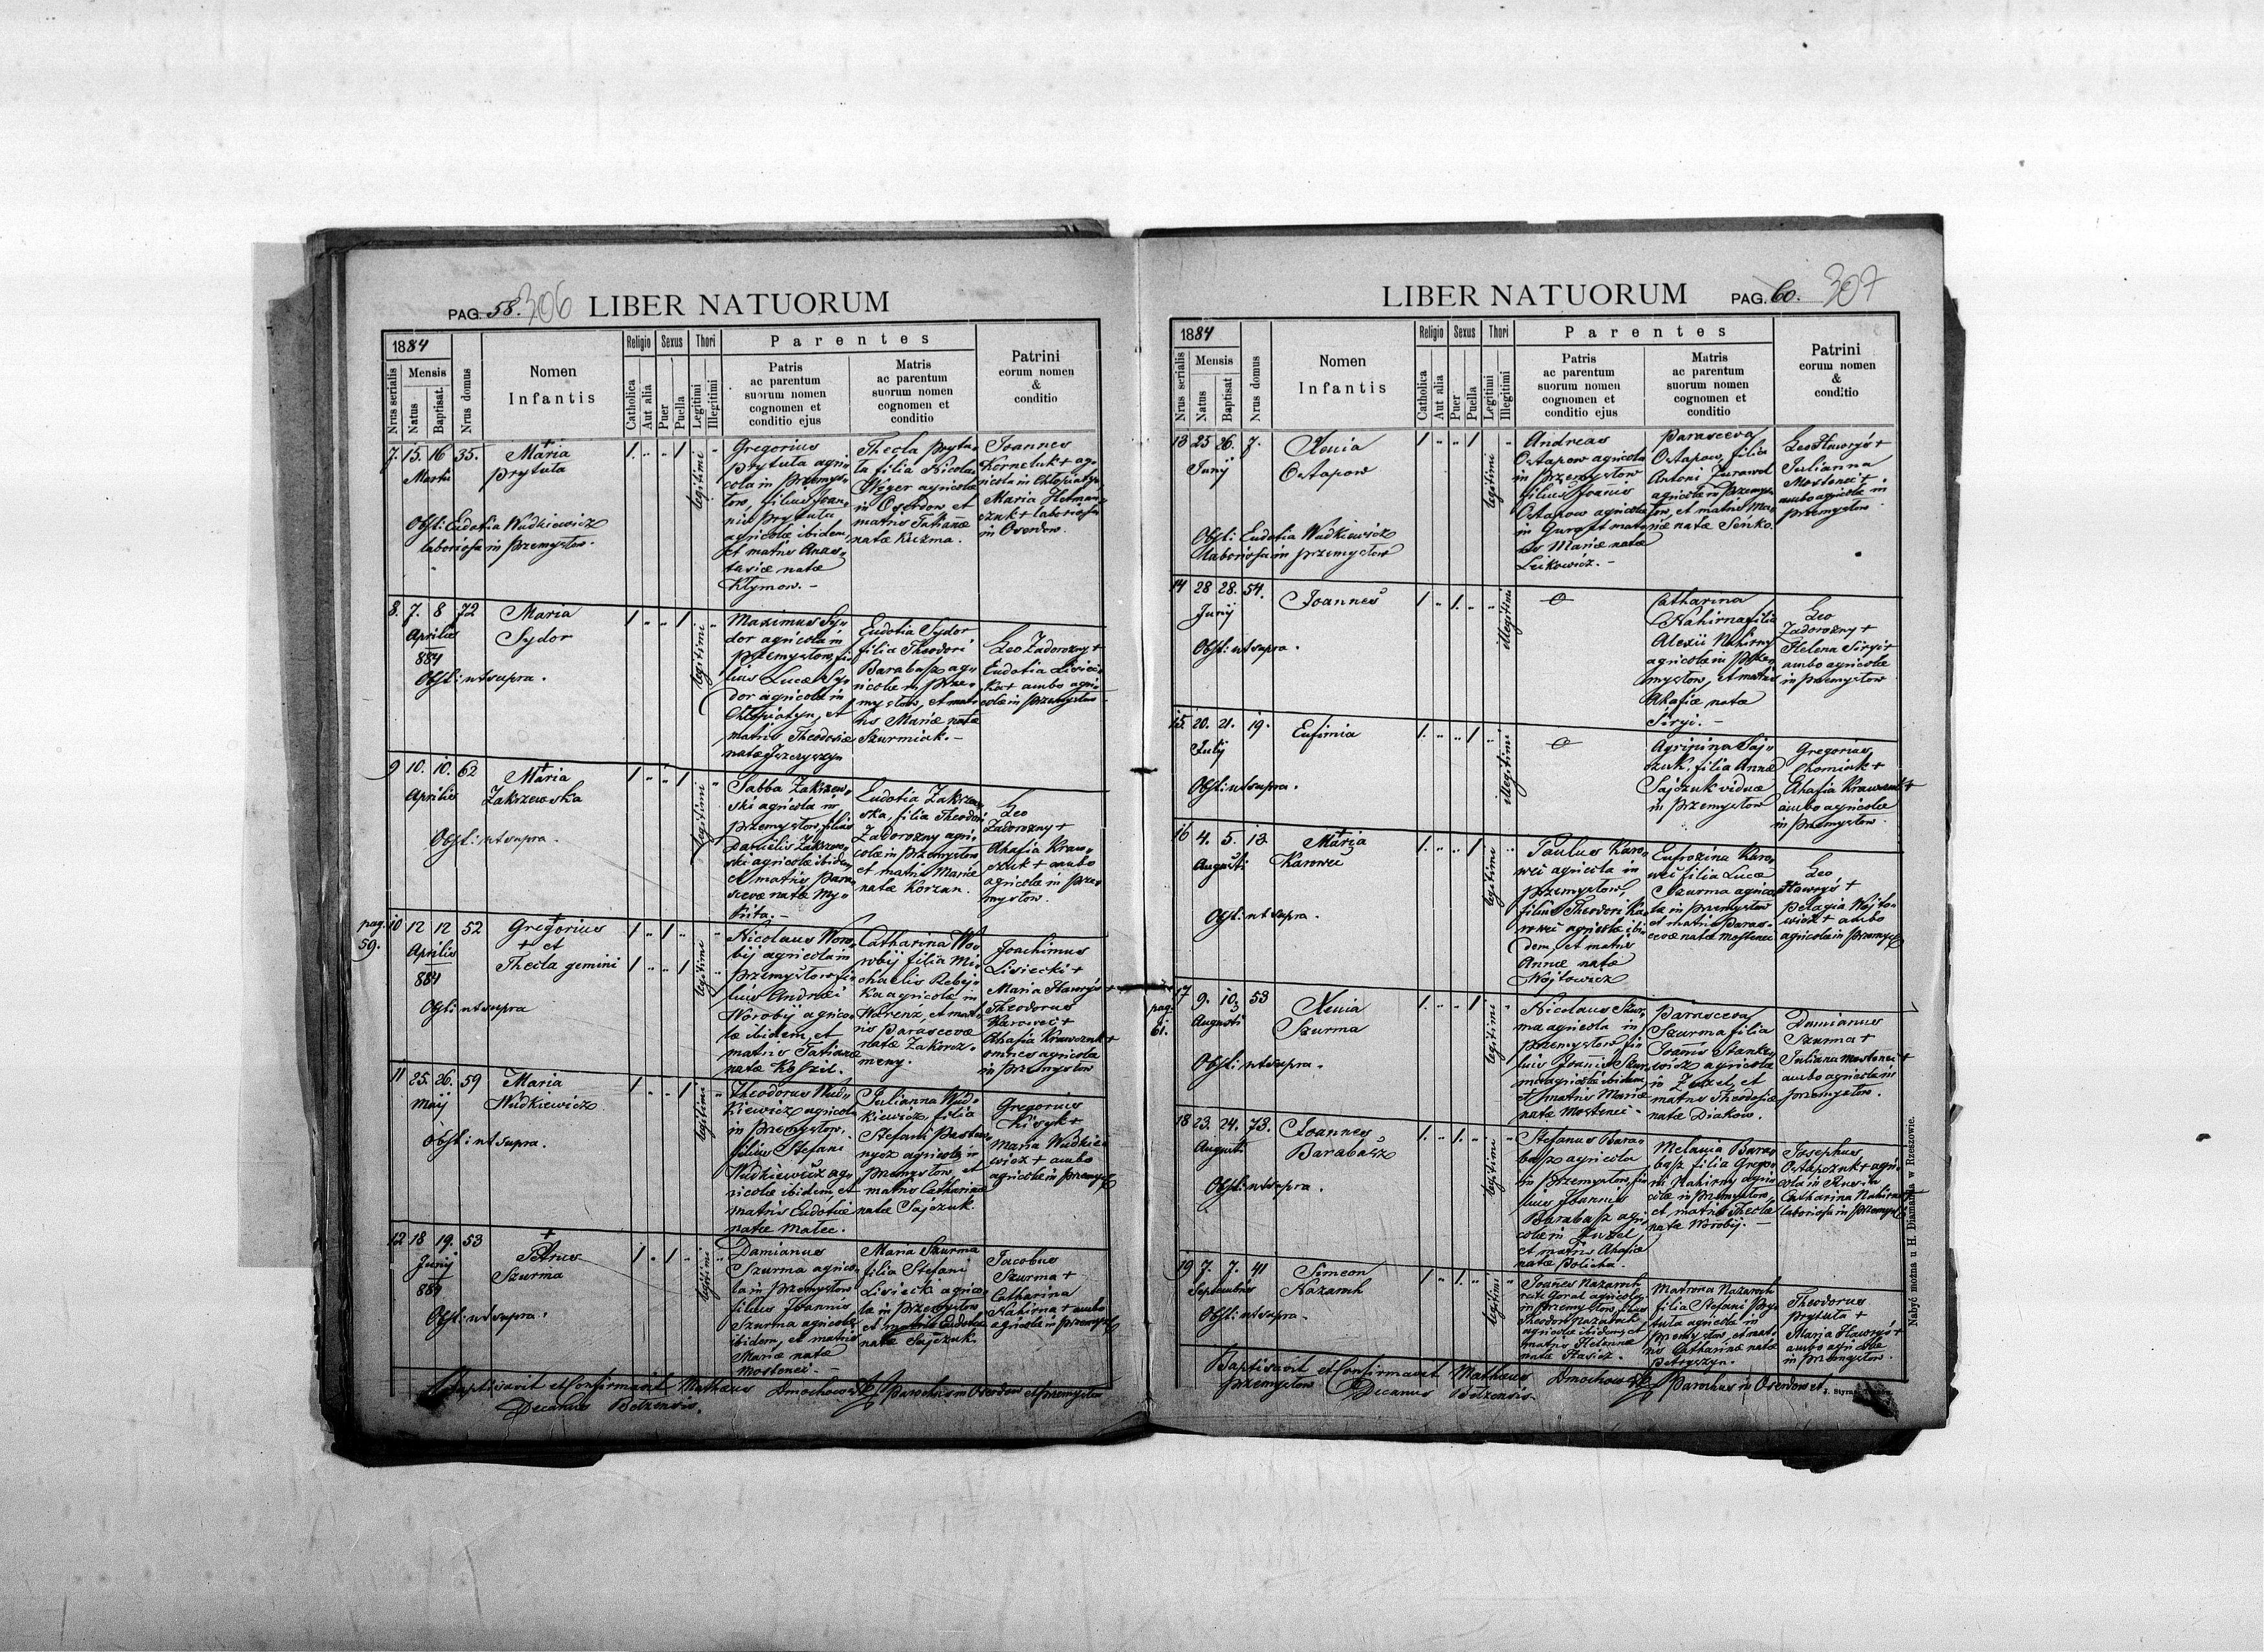 PAG. 58. 306 LIBER NATUORUM
1884
Nrus serialis
Mensis
Natus
Baptisat.
Nrus domus
Nomen
Infantis
Religio
Catholica
Aut alia
Sexus
Puer
Puella
Thori
Legitimi
Illegitimi
Parentes
Patris
ac parentum
suorum nomen
cognomen et
conditio ejus
Matris
ac parentum
suorum nomen
cognomen et
conditio
Patrini
eorum nomen
&
conditio
7. 15. 16 35.
Martii
Maria
Prytuła
Obst: Eudotia Wudkiewicz
laboriosa in Przemysłow.
legitimi
Gregorius
Prytuła agri-
cola in Przemys-
łow, filius Joan-
nis Prytuła
agricolæ ibidem,
et matris Anas-
tasiæ natæ
Kłymow. -
Thecla Prytu-
ła filia Nicolai
Weger agricolæ
in Oserdow et
matris Tatianæ
natæ Kuzma.
Joannes
Korneluk + ag-
ricola in Chłopiatyn
Maria Hetman-
czuk + laboriosa
in Oserdow.
8. 7. 8 72
Aprilis
884
Maria
Sydor
Obst: ut supra.
legitimi
Maximus Sy-
dor agricola in
Przemysłow, fi-
lius Lucæ Sy-
dor agricolæ in
Chłopiatyn, et
matris Theodosiæ
natæ Jszczyszyn
Eudotia Sydor
filia Theodori
Barabasz ag-
ricolæ in Prze-
mysłow, et mat-
ris Mariæ natæ
Szurmiak. -
Leo Zadorozny +
Eudotia Lisiec-
ka + ambo agri-
colæ in Przemysłow
9 10. 10. 62
Aprilis
Maria
Zakrzewska
Obst: ut supra.
legitimi
Sabba Zakrzew-
ski agricola in
Przemysłow, filius
Danielis Zakrzew-
ski agricolæ ibidem,
et matris Para-
scevæ natæ My-
kita. -
Eudotia Zakrzew-
ska, filia Theodori
Zadorozny agri-
colæ in Przemysłow
et matris Mariæ
natæ Korzan.
Leo
Zadorozny +
Ahafia Kraw-
czuk + ambo
agricolæ in Prze-
mysłow.
pag.
59.
10 12 12 52
Aprilis
884
Gregorius
+ et
Thecla gemini
Obst: ut supra
legitimi
Nicolaus Woro-
bij agricola in
Przemysłow, fi-
lius Andreæ
Worobij agrico-
læ ibidem, et
matris Tatianæ
natæ Koszil.
Catharina Wo-
robij filia Mi-
chaelis Rebij-
ka agricolæ in
Warenz, et mat-
ris Parascevæ
natæ Zakorz-
meny.
Joachimus
Lisiecki +
Maria Hawryś +
Theodorus
Karoweć +
Ahafia Krawczuk +
omnes agricolæ
in Przemysłow
11 25. 26. 59
Maij
Maria
Wudkiewicz
Obst: ut supra.
legitimi
Theodorus Wud-
kiewicz agricola
in Przemysłow,
filius Stefani
Wudkiewicz ag-
ricolæ ibidem, et
matris Eudotiæ
natæ Malec.
Julianna Wud-
kiewicz, filia
Stefani
agricolæ in
Przemysłow, et
matris Catharinæ
natæ Sajczuk.
Gregorius
Kisyk +
Maria Wudkie-
wicz + ambo
agricolæ in Przemysł
12 18 19. 53
Junij
884
+
Petrus
Szurma
Obst: ut supra.
legitimi
Damianus
Szurma agrico-
la in Przemysłow
filius Joannis
Szurma agricolæ
ibidem, et matris
Mariæ natæ
Mosteneć. -
Maria Szurma
filia Stefani
Lisiecki agrico-
læ in Przemysłow
et matris Eudotiæ
natæ Sajczuk.
Jacobus
Szurma +
Catharina
Nahirna + ambo
agricolæ in Przemysł
Baptisavit et Confirmavit Mathæus Dmochowski Parochus in Oserdow et Przemysłow
Decanus Bełzensis.
LIBER NATUORUM PAG. 60. 307
1884
Nrus serialis
Mensis
Natus
Baptisat.
Nrus domus
Nomen
Infantis
Religio
Catholica
Aut alia
Sexus
Puer
Puella
Thori
Legitimi
Illegitimi
Parentes
Patris
ac parentum
suorum nomen
cognomen et
conditio ejus
Matris
ac parentum
suorum nomen
cognomen et
conditio
Patrini
eorum nomen
&
conditio
13 25 26. 7.
Junij
Xenia
Ostapow
Obst: Eudotia Wudkiewicz
laboriosa in Przemysłow
legitimi
Andreas
Ostapow agricola
in Przemysłow
filius Joannis
Ostapow agricolæ
et mat-
ris Mariæ natæ
Leikowicz. -
Parasceva
Ostapow, filia
Antoni Zurawel
agricolæ in Przemys-
łow, et matris Ma-
riæ natæ Seńko.
Leo Hawryś +
Julianna
Mosteneć +
ambo agricolæ in
Przemysłow.
14 28 28. 54.
Junij
Joannes
Obst: ut supra.
illegitimi
Catharina
Nahirna filia
Alexii Nahirny
agricolæ in Prze-
mysłow, et matris
Ahafiæ natæ
Siryi. -
Leo
Zadorozny +
Helena Siryi +
ambo agricolæ
in Przemysłow
15. 20. 21. 19.
Julij
Eufimia
Obst: ut supra.
illegitimi
Agripina Saj-
czuk, filia Annæ
Sajczuk viduæ
in Przemysłow
Gregorius
Chomiak +
Ahafia Krawczuk +
ambo agricolæ
in Przemysłow.
16 4. 5. 13.
Augusti
Maria
Karoweć
Obst: ut supra.
legitimi
Paulus Karo-
weć agricola in
Przemysłow,
filius Theodori Ka-
roweć agricolæ ibi-
dem, et matris
Annæ natæ
Wojtowicz
Eufrozina Karo-
weć filia Lucæ
Szurma agrico-
læ in Przemysłow
et matris Paras-
cevæ natæ Mosteneć
Leo
Hawryś +
Pelagia Wojto-
wicz + ambo
agricolæ in Przemysł
pag.
61.
17 9. 10. 53
Augusti
Xenia
Szurma
Obst: ut supra.
legitimi
Nicolaus Szur-
ma agricola in
Przemysłow, fi-
lius Joannis Szur-
ma agricolæ ibidem,
et matris Mariæ
natæ Mosteneć -
Parasceva
Szurma filia
Joannis Stanke-
wicz agricolæ
in Zuzel, et
matris Theodosiæ
natæ Diakow.
Damianus
Szurma +
Julianna Mosteneć +
ambo agricolæ in
Przemysłow.
18 23. 24. 73.
Augusti
Joannes
Barabasz
Obst: ut supra.
legitimi
Stefanus Bara-
basz agricola
in Przemysłow, fi-
lius Joannis
Barabasz agri-
colæ in Zuzel,
et matris Ahafiæ
natæ Bolicha.
Melania Bara-
basz filia Grego-
rii Nahirny agri-
colæ in Przemysłow,
et matris Theclæ
natæ Worobij. -
Josephus
Ostapczuk + agri-
cola in
Catharina Nahirna +
laboriosa in Przemysł
19 7. 7. 41
Septembris
Simeon
Nazaroch
Obst: ut supra.
legitimi
Joannes Nazaroch
recte Goral agricola
in Przemysłow, filius
Theodori Nazaroch
agricolæ ibidem, et
matris Helennæ
natæ Stasicz.
Matrona Nazaroch
filia Stefani Pry-
tuła agricolæ in
Przemysłow, et mat-
ris Catharinæ natæ
Petryszyn.
Theodorus
Prytuła +
Maria Hawryś +
ambo agricolæ
in Przemysłow.
Baptisavit et Confirmavit Mathæus Dmochowski Parochus in Oserdow et
Przemysłow Decanus Bełzensis.
Nabyć można u H. Diamanda w Rzeszowie.